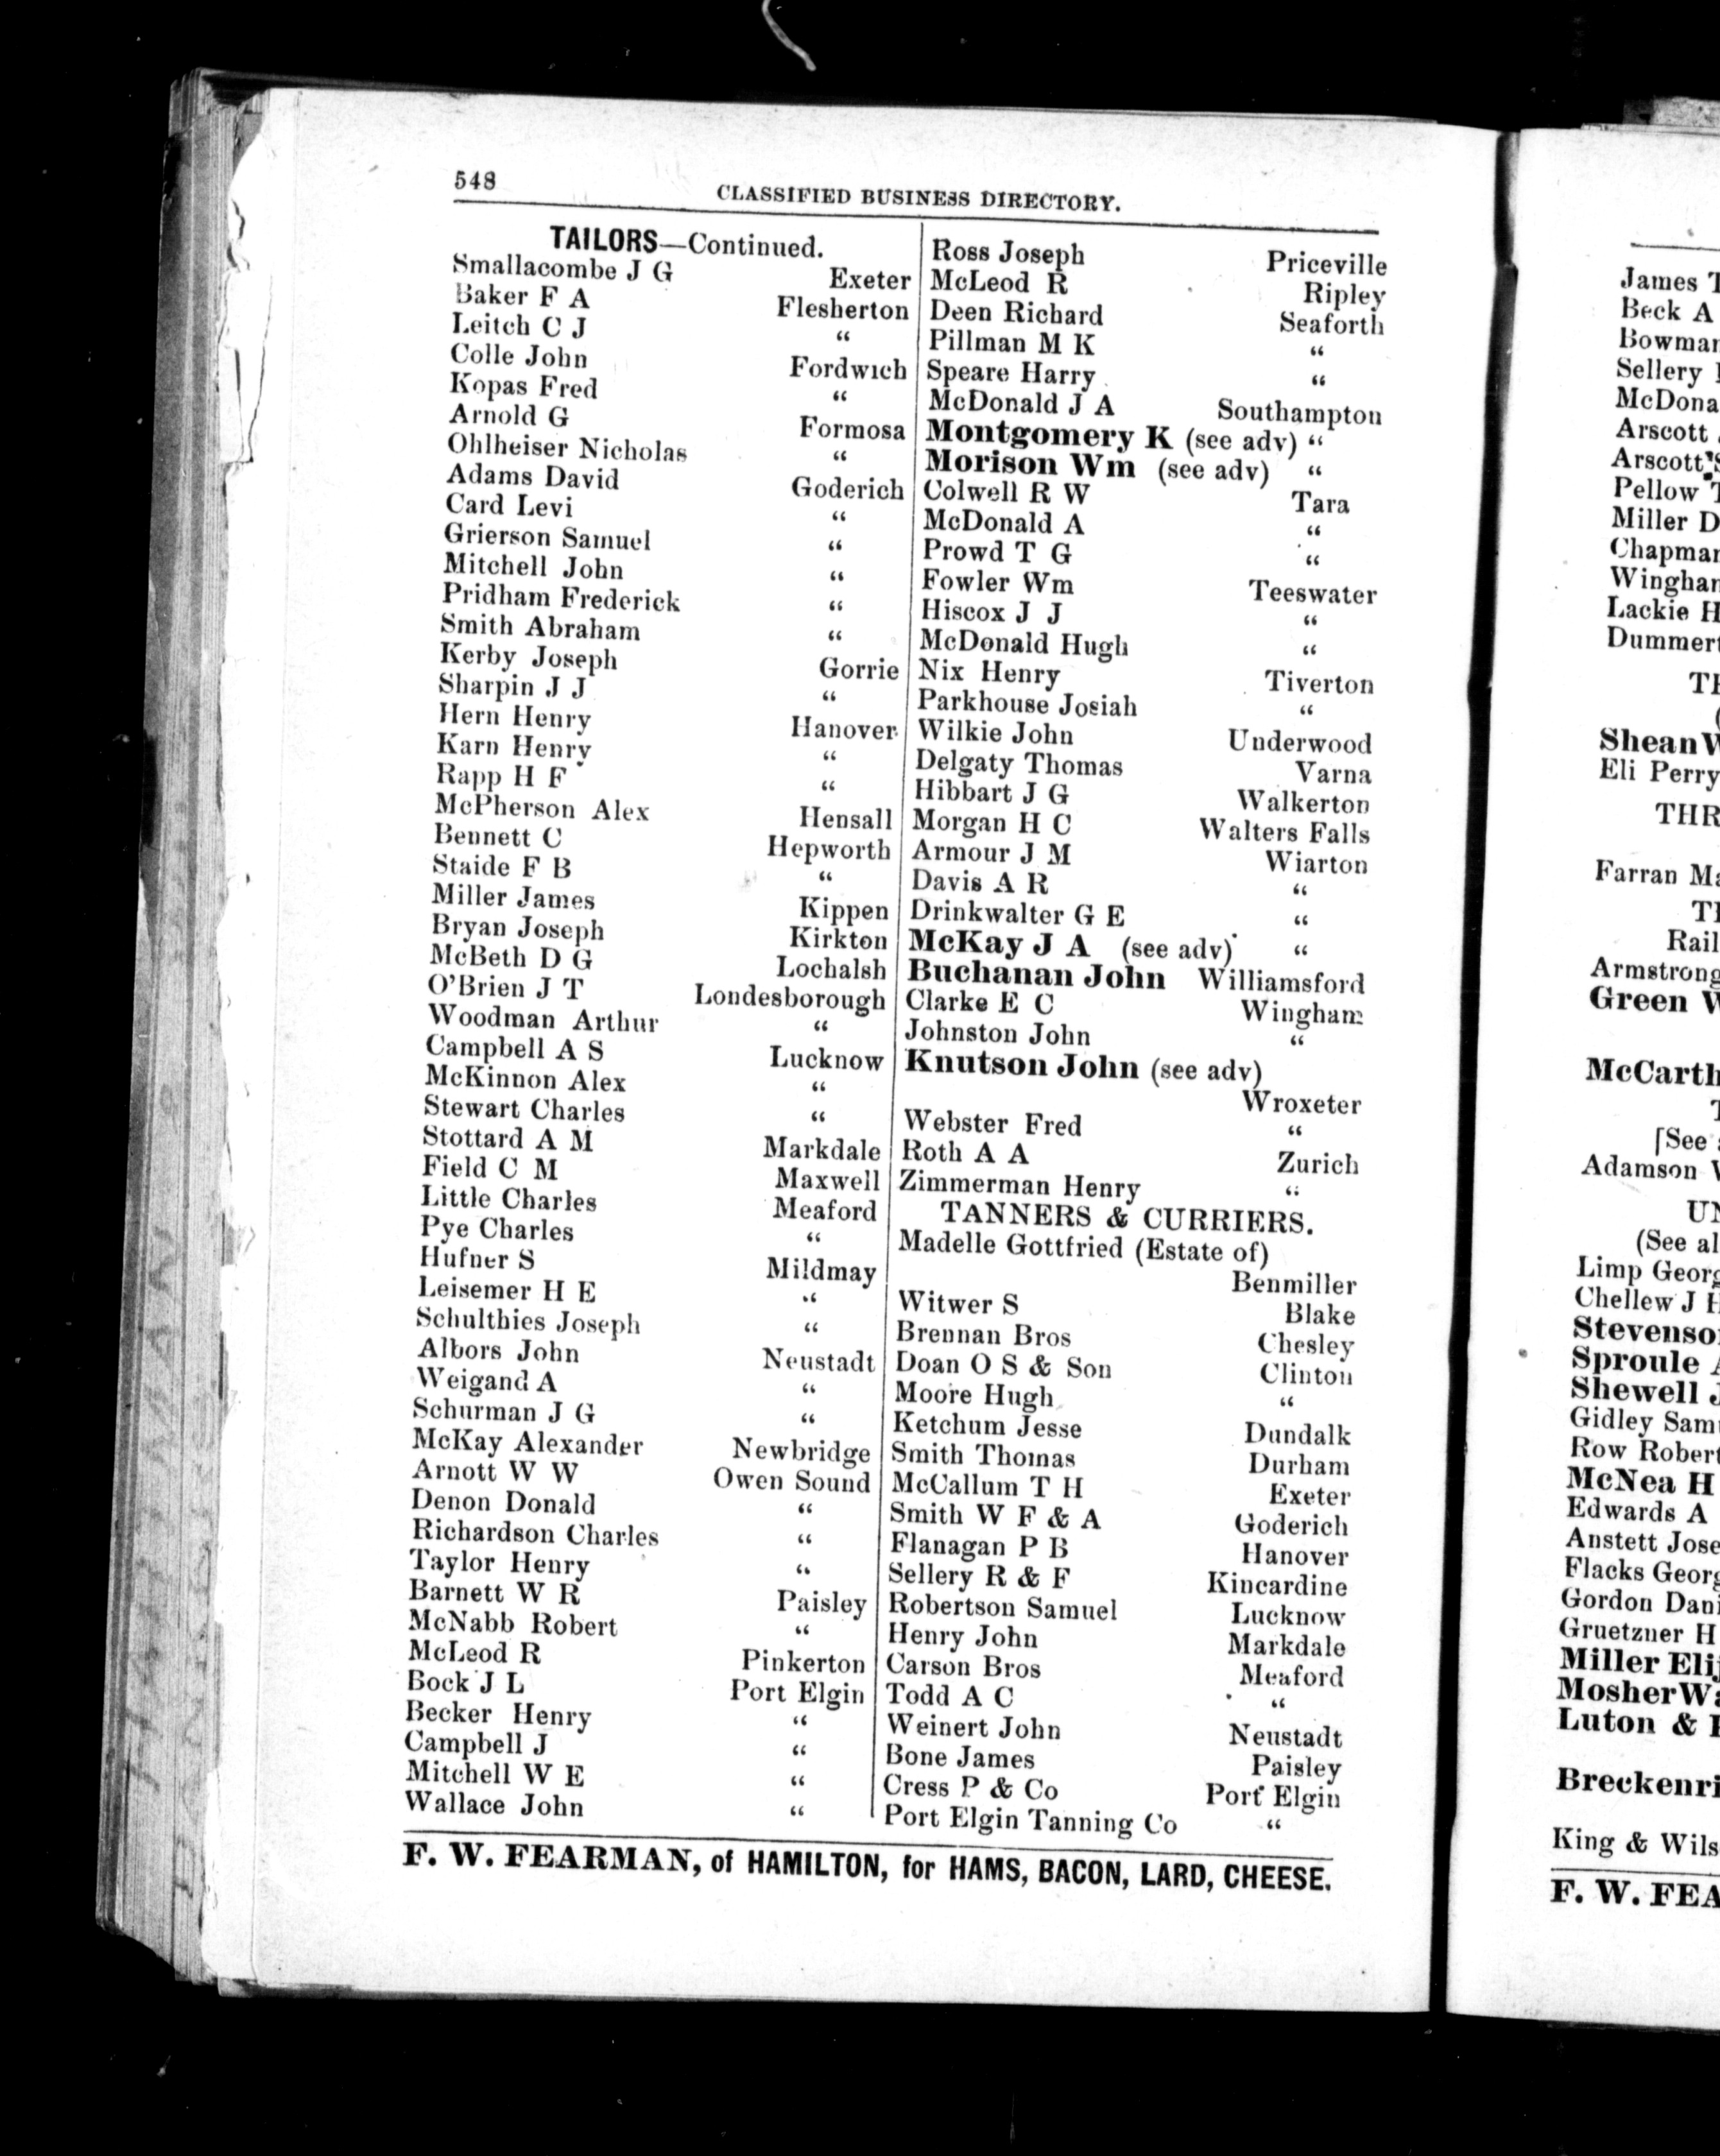 548
CLASSIFIED BUSINESS DIRECTORY.
TAILORS—Continued.
Smallacombe J G Exeter
Baker F A Flesherton
Leitch C J “
Colle John Fordwich
Kopas Fred “
Arnold G Formosa
Ohlheiser Nicholas “
Adams David Goderich
Card Levi “
Grierson Samuel “
Mitchell John “
Pridham Frederick “
Smith Abraham “
Kerby Joseph Gorrie
Sharpin J J “
Hern Henry Hanover
Karn Henry “
Rapp H F “
McPherson Alex Hensall
Bennett C Hepworth
Staide F B “
Miller James Kippen
Bryan Joseph Kirkton
McBeth D G Lochalsh
O'Brien J T Londesborough
Woodman Arthur “
Campbell A S Lucknow
McKinnon Alex “
Stewart Charles “
Stottard A M Markdale
Field C M Maxwell
Little Charles Meaford
Pye Charles “
Hufner S Mildmay
Leisemer H E “
Schulthies Joseph “
Albors John Neustadt
Weigand A “
Schurman J G “
McKay Alexander Newbridge
Arnott W W Owen Sound
Denon Donald “
Richardson Charles “
Taylor Henry “
Barnett W R Paisley
McNabb Robert “
McLeod R Pinkerton
Bock J L Port Elgin
Becker Henry “
Campbell J “
Mitchell W E “
Wallace John “
Ross Joseph Priceville
McLeod R Ripley
Deen Richard Seaforth
Pillman M K “
Speare Harry “
McDonald J A Southampton
Montgomery K (see adv) “
Morison Wm (see adv) “
Colwell R W Tara
McDonald A “
Prowd T G “
Fowler Wm Teeswater
Hiscox J J “
McDonald Hugh “
Nix Henry Tiverton
Parkhouse Josiah “
Wilkie John Underwood
Delgaty Thomas Varna
Hibbart J G Walkerton
Morgan H C Walters Falls
Armour J M Wiarton
Davis A R “
Drinkwalter G E “
McKay J A (see adv) “
Buchanan John Williamsford
Clarke E C Wingham
Johnston John “
Knutson John (see adv)
Wroxeter
Webster Fred “
Roth A A Zurich
Zimmerman Henry “
TANNERS & CURRIERS.
Madelle Gottfried (Estate of)
Benmiller
Witwer S Blake
Brennan Bros Chesley
Doan O S & Son Clinton
Moore Hugh “
Ketchum Jesse Dundalk
Smith Thomas Durham
McCallum T H Exeter
Smith W F & A Goderich
Flanagan P B Hanover
Sellery R & F Kincardine
Robertson Samuel Lucknow
Henry John Markdale
Carson Bros Meaford
Todd A C “
Weinert John Neustadt
Bone James Paisley
Cress P & Co Port Elgin
Port Elgin Tanning Co “
F. W. FEARMAN, of HAMILTON, for HAMS, BACON, LARD, CHEESE.
James
Beck A
Sellery
Arscott
Pellow
Miller D
Lackie H
Shean
Eli Perry
Farran
Rail
Armstrong
Green
[See
Adamson
(See
Limp
Chellew J
Sproule
Shewell
Gidley
Row
McNea H
Edwards A
Anstett
Flacks
Gordon
Gruetzner H
Miller
Mosher
Luton &
King &
F. W.